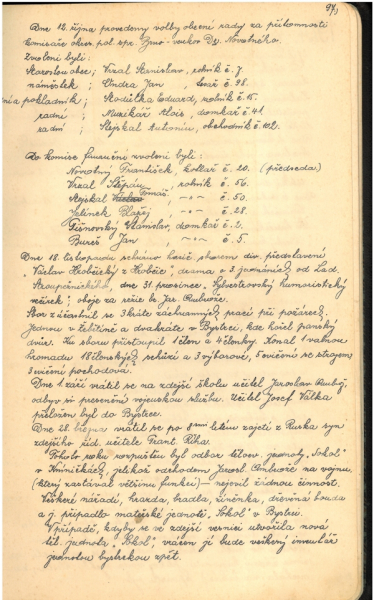 97)
Dne 12. října provedeny volby obecní rady za přítomnosti
komisaře okres. pol. spr. Brno-venkov Dr. Novotného.
Zvoleni byli:
Starostou obce; Vrzal Stanislav, rolník č. 7.
náměstek ; Ondra Jan , tesař č. 98.
a pokladník; Stodůlka Eduard, rolník č. 15.
radní ; Muzikář Alois, domkář č. 41.
radní ; Stejskal Antonín, obchodník č. 102.
Do komise finanční zvoleni byli:
Novotný František, kolář č. 20. (předseda)
Vrzal Štěpán , rolník č. 56.
Stejskal Tomáš, -"- č. 50.
Jelínek Blažej , -"- č. 28.
Tišnovský Stanislav, domkář č. 2.
Bureš Jan , -"- č. 5.
Dne 18. listopadu sehráno hasič. sborem div. představení
"Václav Hrobčický z Hrobčic", drama o 3. jednáních od Lad.
Stroupežnického, dne 31. prosince "Sylvestrovský humoristický
večírek"; oboje za režie br. Jar.
Sbor zúčastnil se 3kráte záchranných prací při požárech.
Jednou v Žebětíně a dvakráte v Bystrci, kde hořel panský
dvůr. Ke sboru přistoupil 1 člen a 4 členky. Konal 1 valnou
hromadu 18 členských schůzí a 3 výborové, 5 cvičení se strojem,
3 cvičení pochodová.
Dne 1. září vrátil se na zdejší školu učitel Jaroslav
odbyv si presenční vojenskou službu. Učitel Josef Válka
přeložen byl do Bystrce.
Dne 28. března vrátil se po 8mi letém zajetí z Ruska syn
zdejšího říd. učitele Frant. Říha.
Tohoto roku rozpuštěn byl odbor tělocv. jednoty "Sokol"
v Kníničkách, jelikož odchodem Jarosl. na vojnu
(který zastával většinu funkcí) - nejevil žádnou činnost.
Veškeré nářadí, hrazda, bradla, žíněnka, dřevěná bouda
a j. připadlo mateřské jednotě "Sokol" v Bystrci.
V případě, kdyby se ve zdejší vesnici utvořila nová
těl. jednota "Sokol", vrácen jí bude veškerý inventář
jednotou bystrckou zpět.